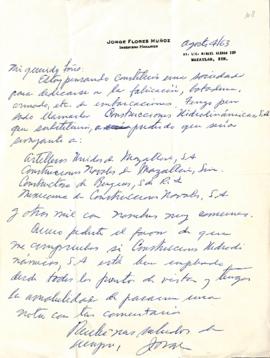 JORGE FLORES MUÑOZ
INGENIERO MECANICO
MAZATLAN, SIN.
agosto 4/63
Mi querido
Estoy pensando constituir una sociedad
para dedicarse a la fabricación, botadura,
armado, etc. de embarcaciones. Tengo pen-
sado llamarla Construcciones Hidrodinámicas, S.A.
que substituiría, a pedido que
Astilleros Unidos de Mazatlán, S.A.
Construcciones Navales de Mazatlán, Sin.
Constructora de Buques, S. de R.L.
Mexicana de Construcciones Navales, S.A.
y otros mil con nombres muy comunes.
Quiero pedirte el favor de que
me Construcciones Hidrodi-
námicas, S.A. está bien empleado
desde todos los puntos de vista y tengas
la amabilidad de pasarme una
nota con tus comentarios
Recibe mis saludos de
siempre, Jorge